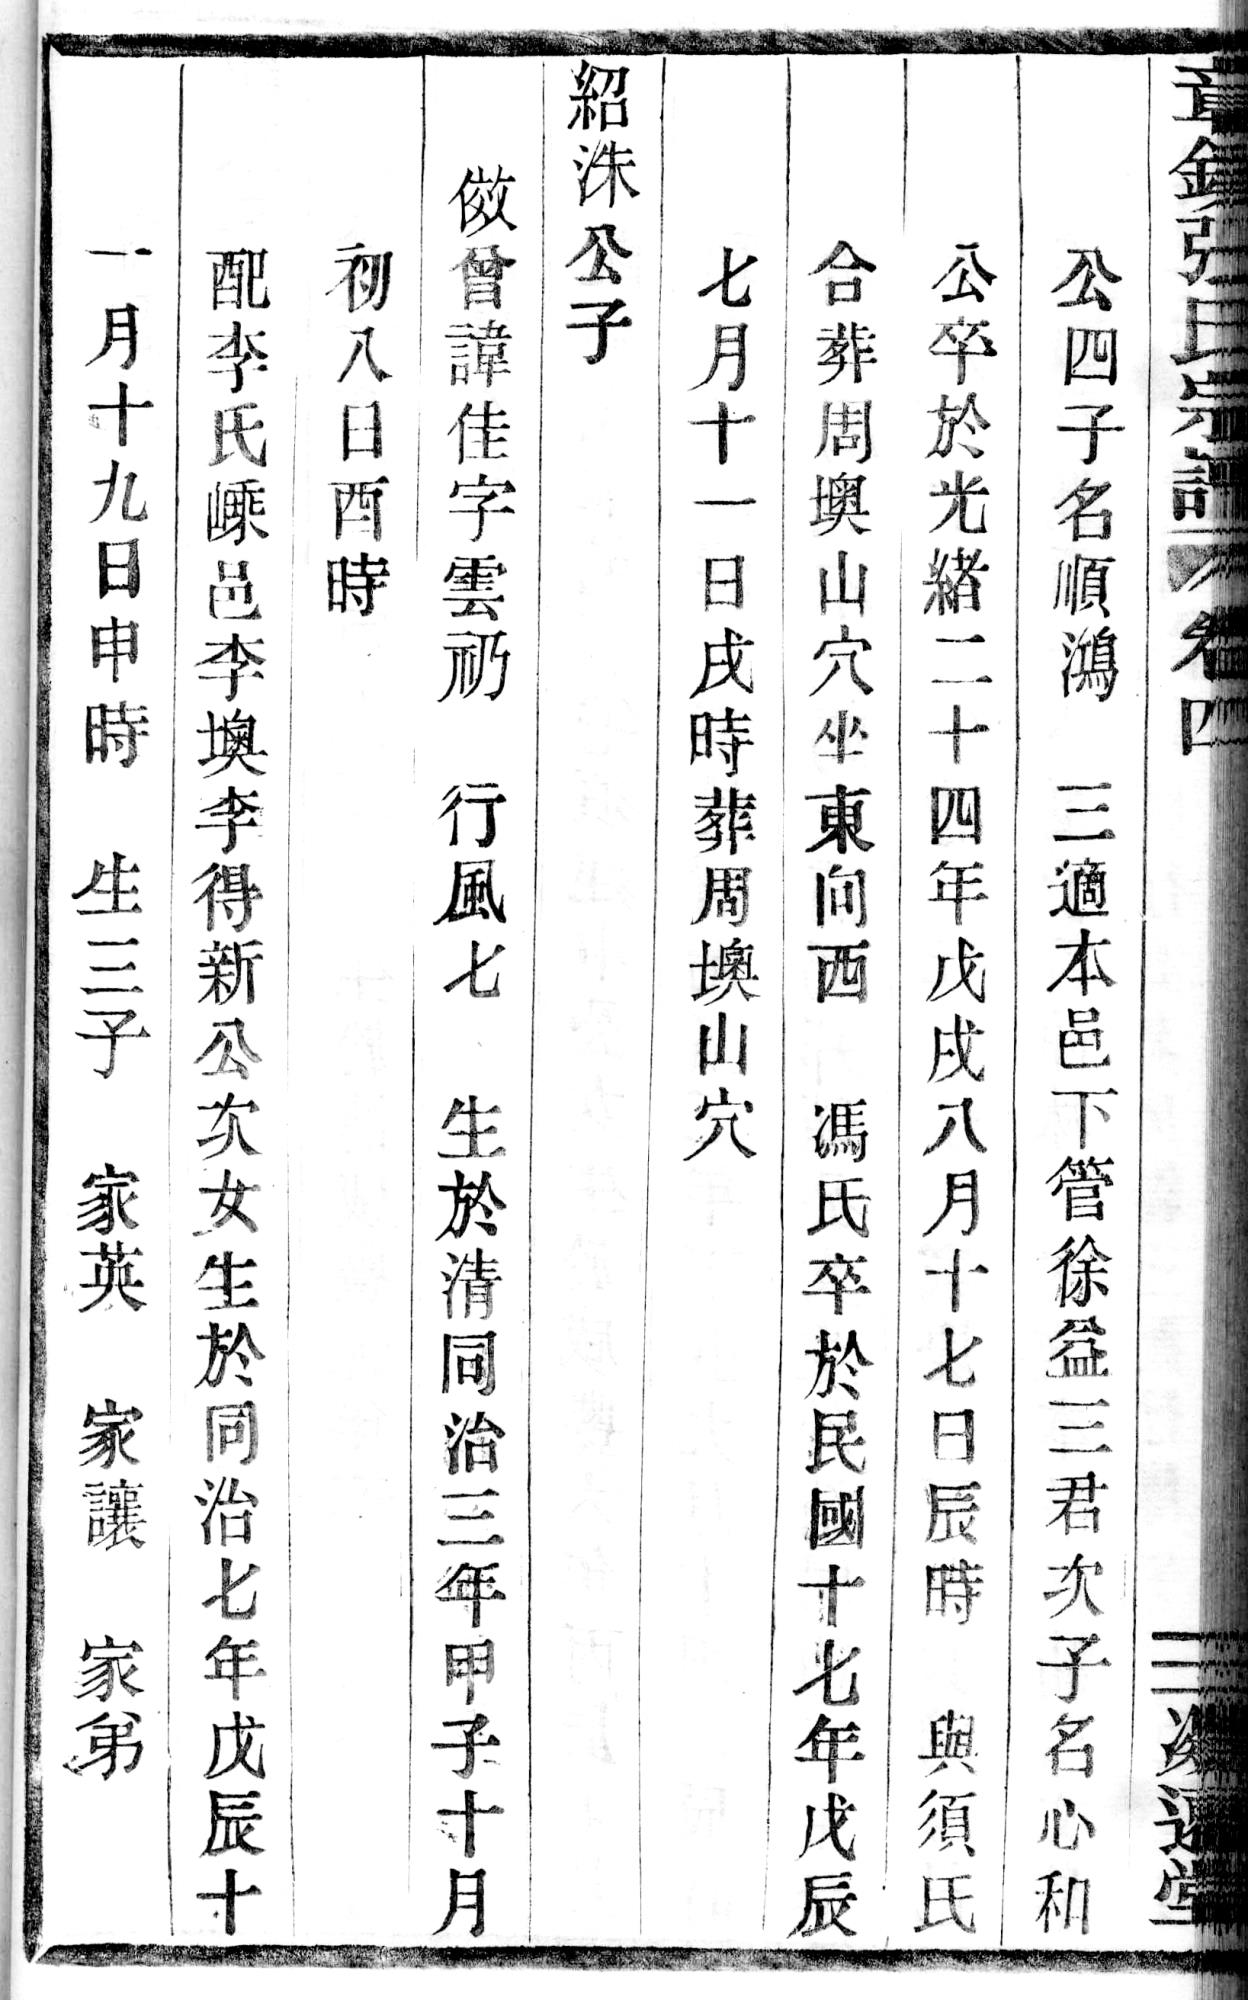 章鎮張氏宗譜 卷四 二 追遠堂
公四子名順鴻 三適本邑下管徐益三君次子名心和
公卒於光緒二十四年戊戌八月十七日辰時 與須氏
合葬周墺山穴坐東向西 馮氏卒於民國十七年戊辰
七月十一日戌時葬周墺山穴
紹洙公子
儆曾諱佳字雲礽 行風七 生於清同治三年甲子十月
初八日酉時
配李氏嵊邑李墺李得新公次女生於同治七年戊辰十
一月十九日申時 生三子 家英 家讓 家弟